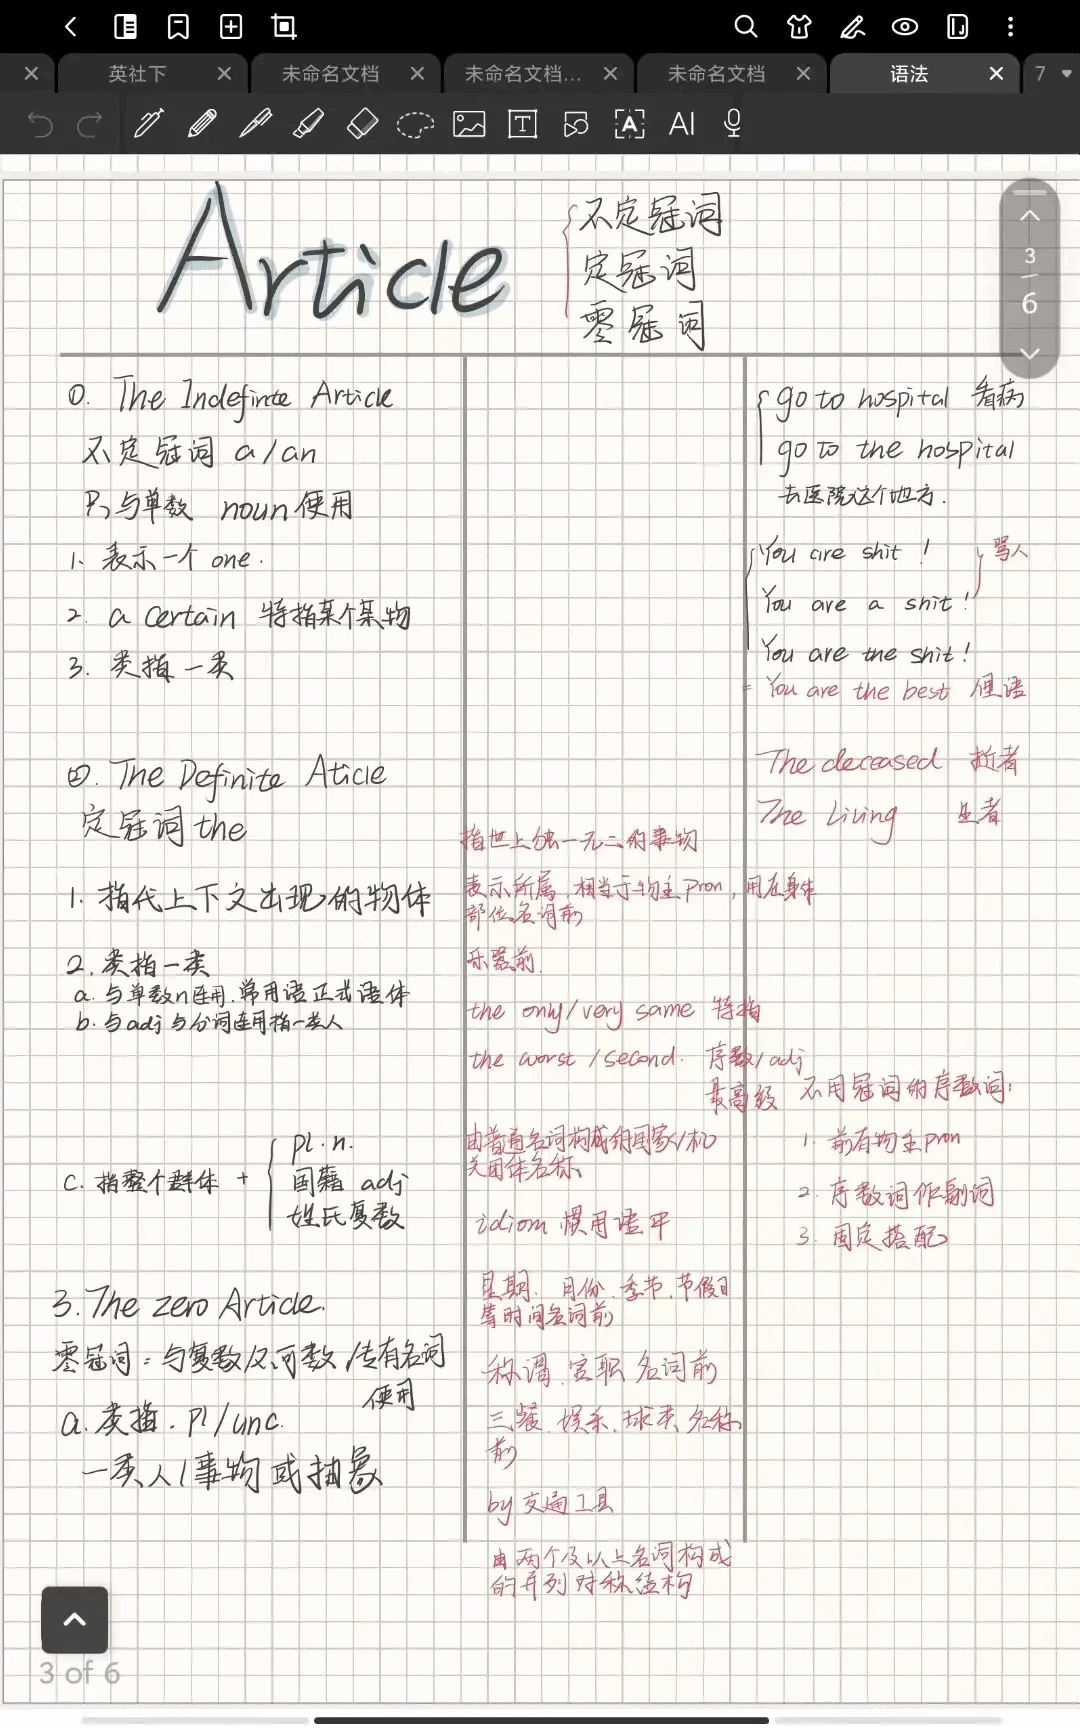 英社下
未命名文档
未命名文档...
未命名文档
语法
7
AI
Article
不定冠词
定冠词
零冠词
3
6
①. The Indefinite Article
不定冠词 a/an
只与单数 noun 使用
1. 表示一个 one.
2. a certain 特指某个某物
3. 类指一类
②. The Definite Aticle
定冠词 the
1. 指代上下文出现的物体
2. 类指一类
a. 与单数n连用.常用语正式语体
b. 与adj与分词连用指一类人
c. 指整个群体 +
pl.n.
国籍 adj
姓氏复数
3. The zero Article.
零冠词: 与复数/不可数/专有名词
使用
a. 类指. pl/unc.
一类人/事物或抽象
指世上独一无二的事物
表示所属.相当于物主pron, 用在身体
部位名词前
乐器前.
the only/very same 特指
the worst/second. 序数/adj
最高级
由普通名词构成的国家/机
关团体名称、
idiom 惯用语中
星期.月份.季节.节假日
等时间名词前
称谓.官职 名词前
三餐.娱乐.球类.名称
前
by 交通工具
由两个及以上名词构成
的并列对称结构
go to hospital 看病
go to the hospital
去医院这个地方.
You are shit! 骂人
You are a shit!
You are the shit!
= You are the best 俚语
The deceased 逝者
The Living 生者
不用冠词的序数词:
1. 前有物主pron
2. 序数词作副词
3. 固定搭配
3 of 6